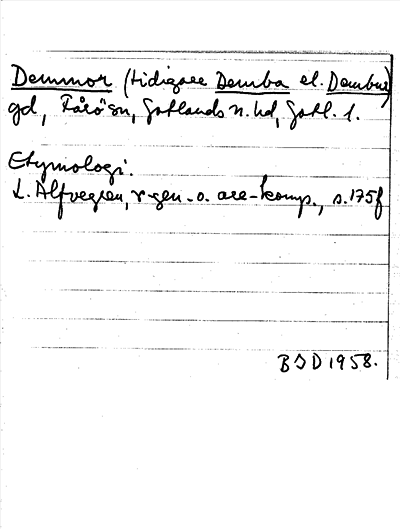 Demmor (tidigare Demba el. Dembur)
gd, Fårö sn, Gotlands n. hd, Gotl. l.
Etymologi:
L. Alfvegren, r-gen. o. are-komp., s. 175f
BSD 1958.